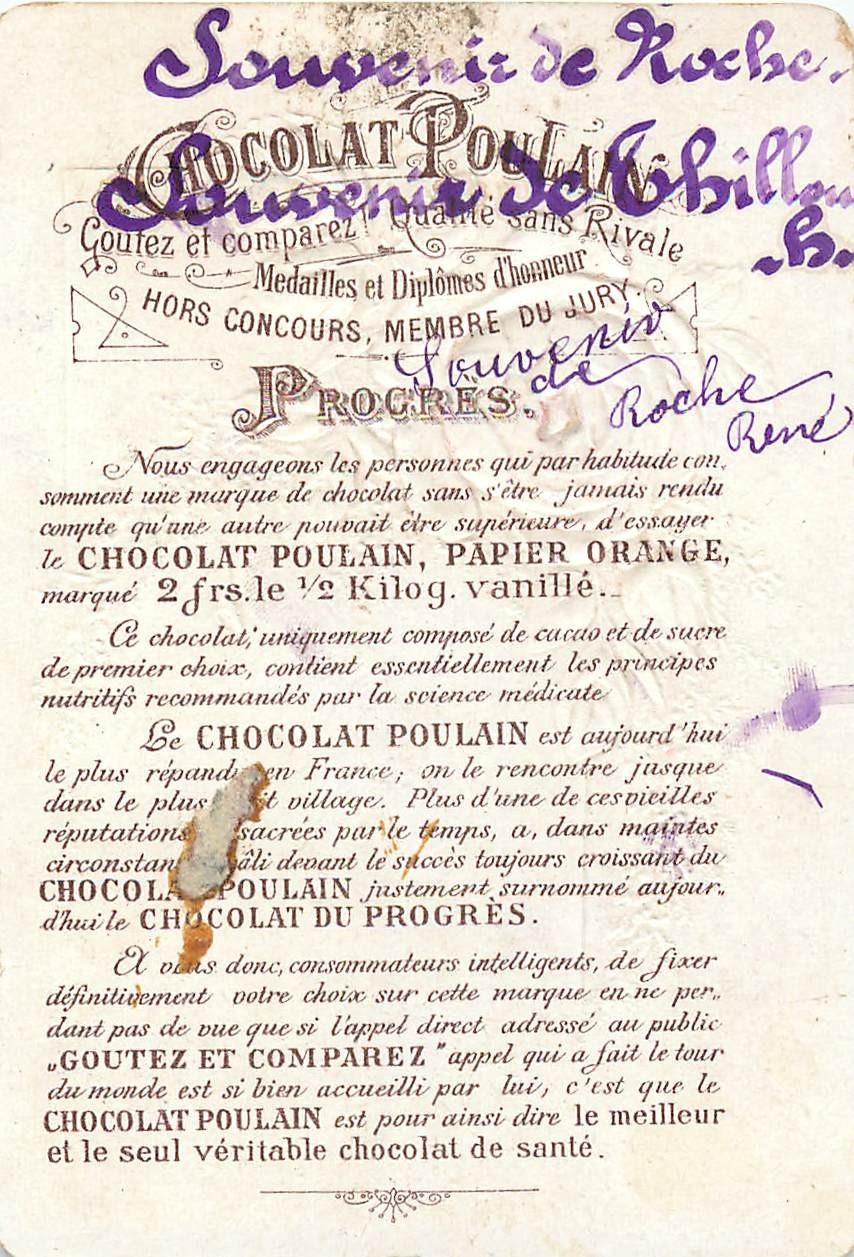 Souvenir de Roche.
CHOCOLAT POULAIN
Souvenir de Thillou
h.
Goutez et comparez! Qualité sans Rivale
Medailles et Diplômes d'honneur
HORS CONCOURS, MEMBRE DU JURY.
Souvenir
de
Roche
René
PROGRÈS.
Nous engageons les personnes qui par habitude con„
somment une marque de chocolat sans s'être jamais rendu
compte qu'une autre pouvait être supérieure, d'essayer
le CHOCOLAT POULAIN, PAPIER ORANGE,
marqué 2 frs. le ½ Kilog. vanillé._
Ce chocolat, uniquement composé de cacao et de sucre
de premier choix, contient essentiellement les principes
nutritifs recommandés par la science médicate
Le CHOCOLAT POULAIN est aujourd'hui
le plus répandu en France; on le rencontre jusque
dans le plus it village. Plus d'une de ces vieilles
réputations sacrées par le temps, a, dans maintes
circonstan âli devant le succès toujours croissant du
CHOCOLA POULAIN justement surnommé aujour„
d'hui le CHOCOLAT DU PROGRÈS.
A vous donc, consommateurs intelligents, de fixer
définitivement votre choix sur cette marque en ne per„
dant pas de vue que si l'appel direct adressé au public
„GOUTEZ ET COMPAREZ" appel qui a fait le tour
du monde est si bien accueilli par lui, c'est que le
CHOCOLAT POULAIN est pour ainsi dire le meilleur
et le seul véritable chocolat de santé.